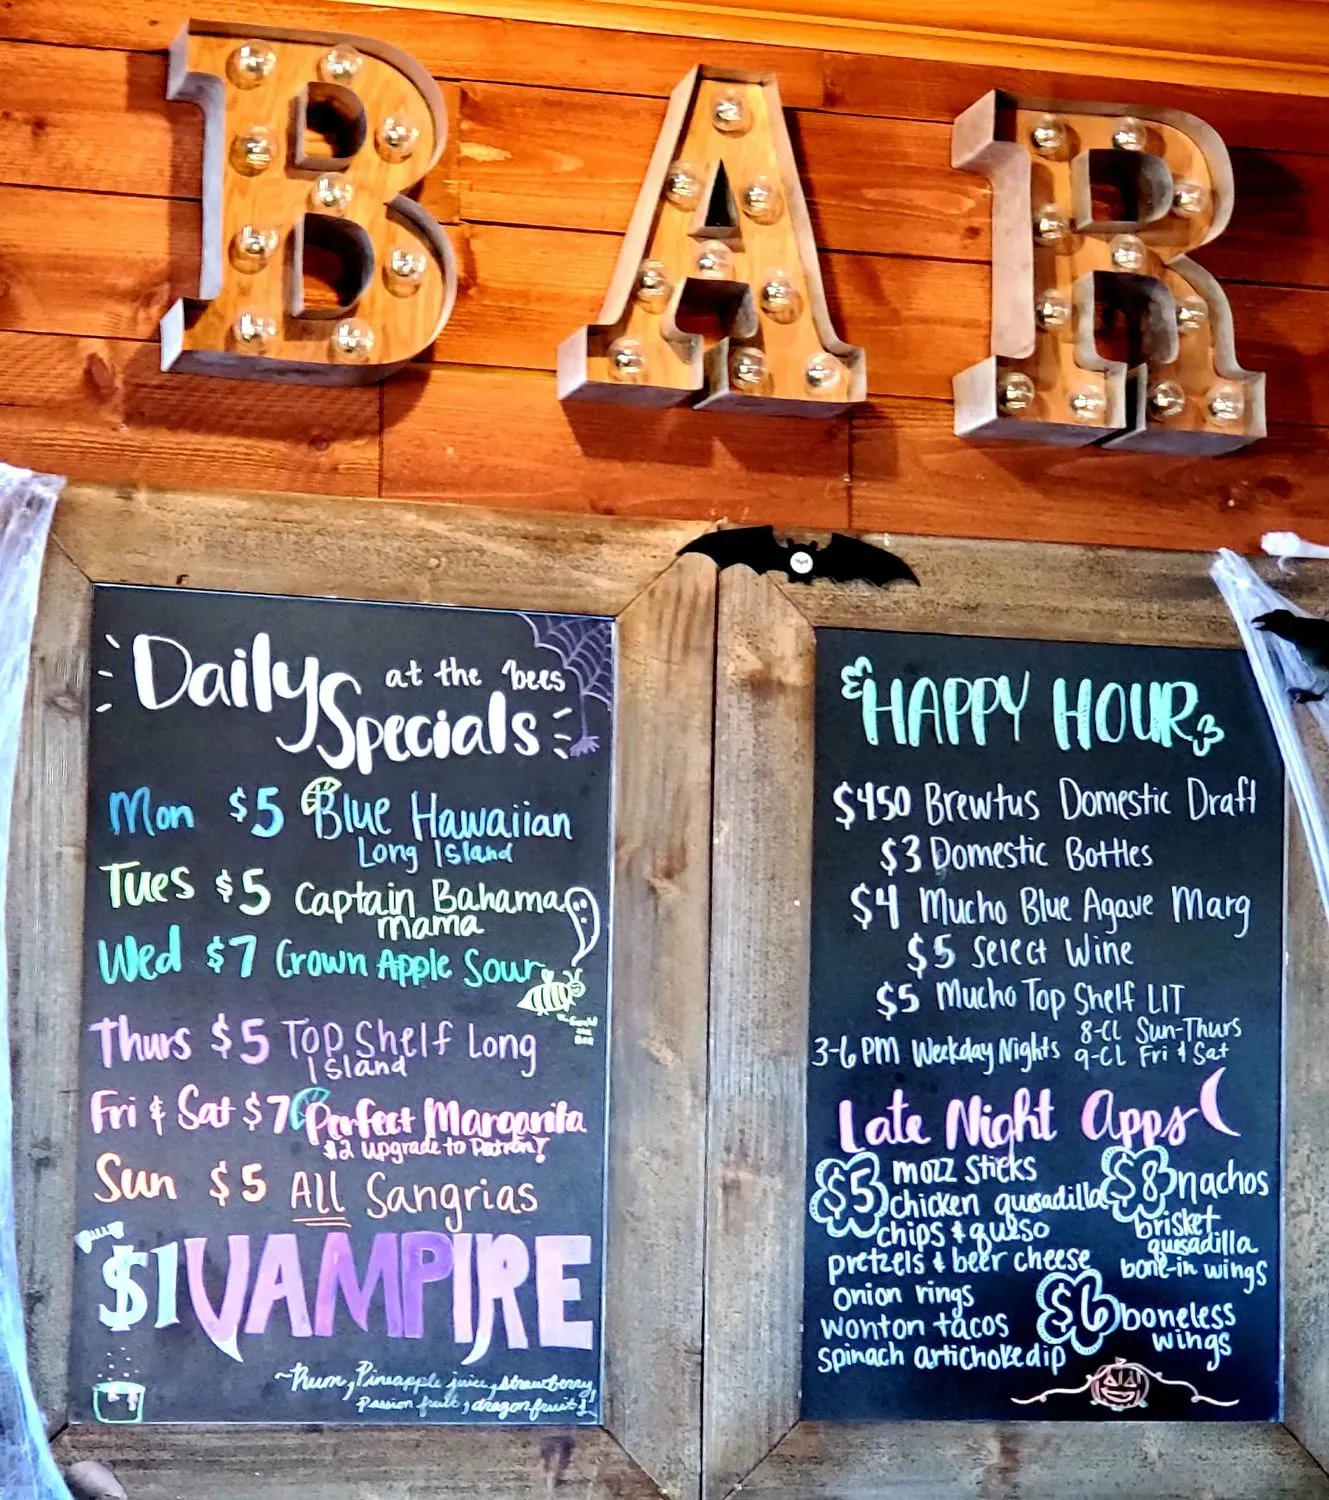 BAR
Daily Specials
at the bees
Mon $5 Blue Hawaiian
Long Island
Tues $5 Captain Bahama
mama
Wed $7 Crown Apple Sour
Thurs $5 Top Shelf Long
Island
Fri & Sat $7 Perfect Margarita
$2 upgrade to Patron!
Sun $5 All Sangrias
$1 VAMPIRE
~Rum, Pineapple juice, strawberry,
Passion fruit, dragonfruit
HAPPY HOUR
$450 Brewtus Domestic Draft
$3 Domestic Bottles
$4 Mucho Blue Agave Marg
$5 Select Wine
$5 Mucho Top Shelf LIT
3-6 PM Weekday Nights
8-CL Sun-Thurs
9-CL Fri & Sat
Late Night Apps
$5 mozz sticks
chicken quesadilla
chips & queso
pretzels & beer cheese
onion rings
wonton tacos
spinach artichoke dip
$8 nachos
brisket
quesadilla
bone-in wings
$6 boneless
wings